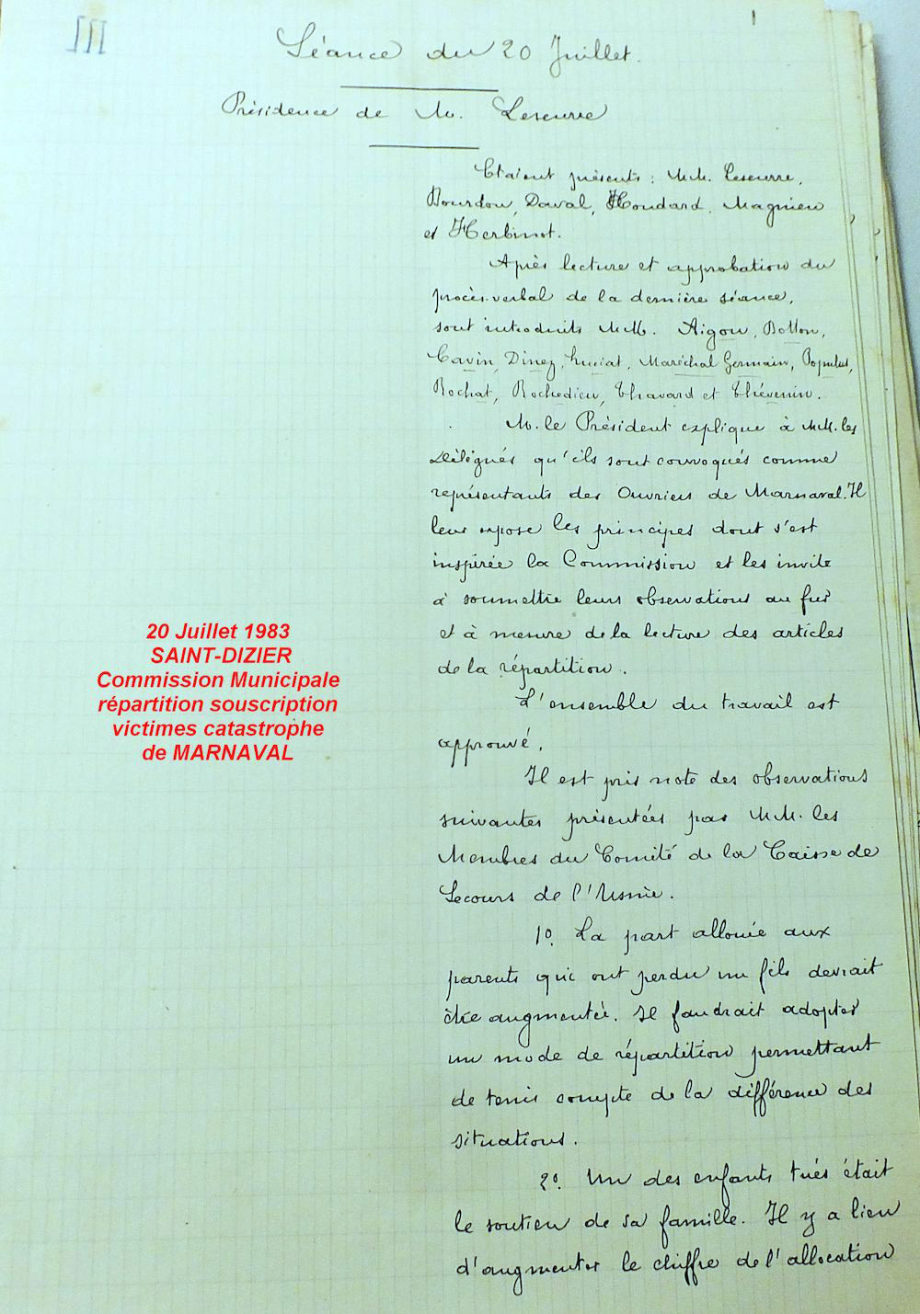 III
1
Séance du 20 Juillet.
Présidence de M. Leseurre
Etaient présents : MM. Leseurre,
Bourdon, Daval, Houdard, Magnien
et Herbinot.
Après lecture et approbation du
procès-verbal de la dernière séance,
sont introduits MM. Aigon, Bollon,
Cavin, Dinez, Maréchal Germain, Populus,
Rochat, Rochedieu, Thavard et Thévenin.
M. le Président explique à MM. les
Délégués qu'ils sont convoqués comme
représentants des Ouvriers de Marnaval. Il
leur expose les principes dont s'est
inspirée la Commission et les invite
à soumettre leurs observations au fur
et à mesure de la lecture des articles
de la répartition.
L'ensemble du travail est
approuvé.
Il est pris note des observations
suivantes présentées par MM. les
Membres du Comité de la Caisse de
Secours de l'Usine.
1º. La part allouée aux
parents qui ont perdu un fils devrait
être augmentée. Il faudrait adopter
un mode de répartition permettant
de tenir compte de la différence des
situations.
2º. Un des enfants tués était
le soutien de sa famille. Il y a lieu
d'augmenter le chiffre de l'allocation
20 Juillet 1983
SAINT-DIZIER
Commission Municipale
répartition souscription
victimes catastrophe
de MARNAVAL